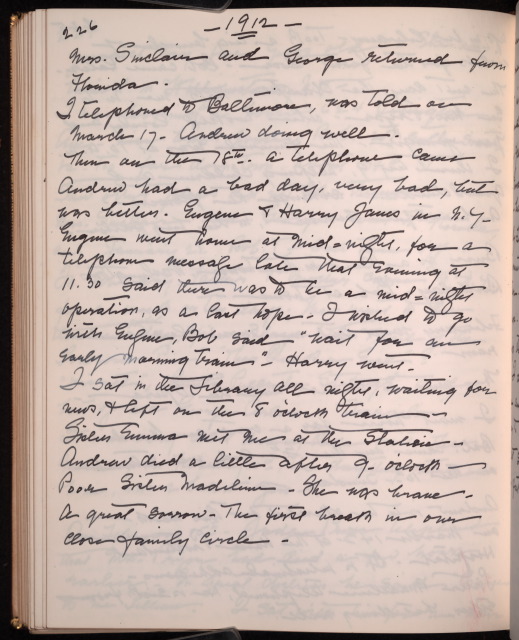 226
- 1912 -
Mrs. Sinclair and George returned from
Florida.
I telephoned to Baltimore, was told on
March 17 - Andrew doing well.
Then on the 18th. a telephone came
Andrew had a bad day, very bad, but
was better. Eugene & Harry James in N.Y-
Eugene went home at mid-night, for a
telephone message late that evening at
11.30 said there was to be a mid=night
operation, as a last hope - I wished to go
with Eugene, Bob said "wait for an
early morning train" - Harry went.
I sat in the Library all night, waiting for
news, & left on the 8 o'clock train -
Sister Emma met me at the Station -
Andrew died a little after 9- o'clock -
Poor Sister Madeline - She was brave -
A great sorrow - The first break in our
close family circle -